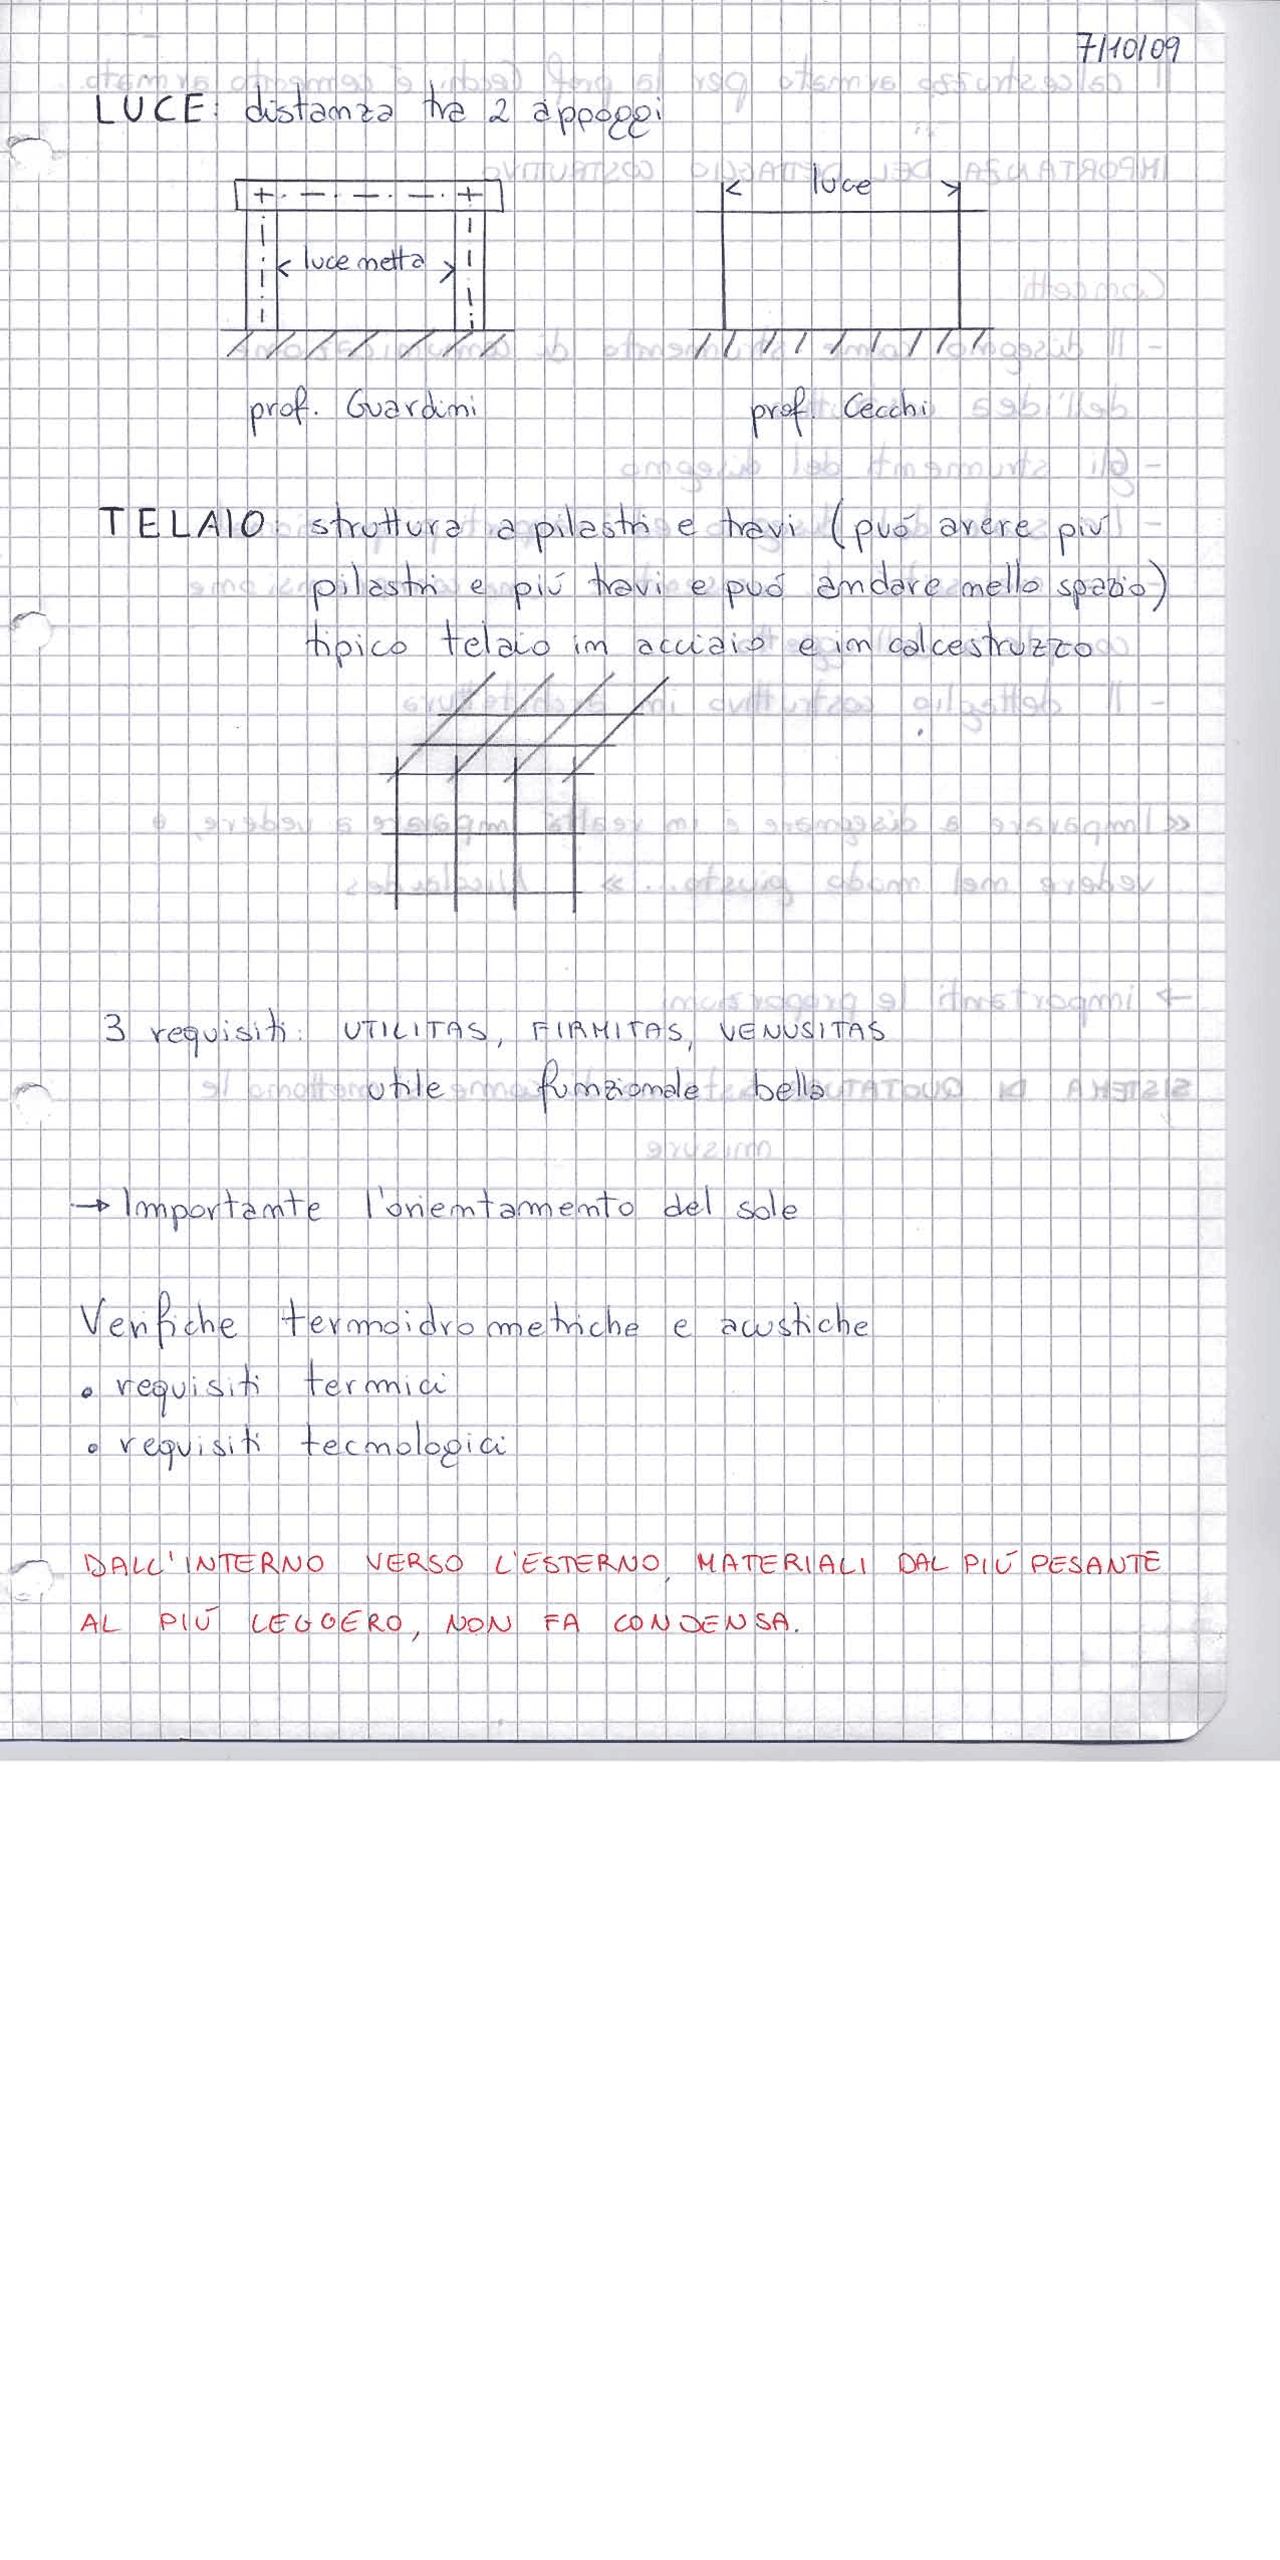 7/10/09
LUCE: distanza tra 2 appoggi
luce
luce netta
prof. Guardini prof. Cecchi
TELAIO: struttura a pilastri e travi (può avere più
pilastri e più travi e può andare nello spazio)
tipico telaio in acciaio e in calcestruzzo
3 requisiti: UTILITAS, FIRMITAS, VENUSITAS
utile funzionale bella
→ Importante l'orientamento del sole
Verifiche termoidrometriche e acustiche
• requisiti termici
• requisiti tecnologici
DALL'INTERNO VERSO L'ESTERNO, MATERIALI DAL PIÚ PESANTE
AL PIÚ LEGGERO, NON FA CONDENSA.